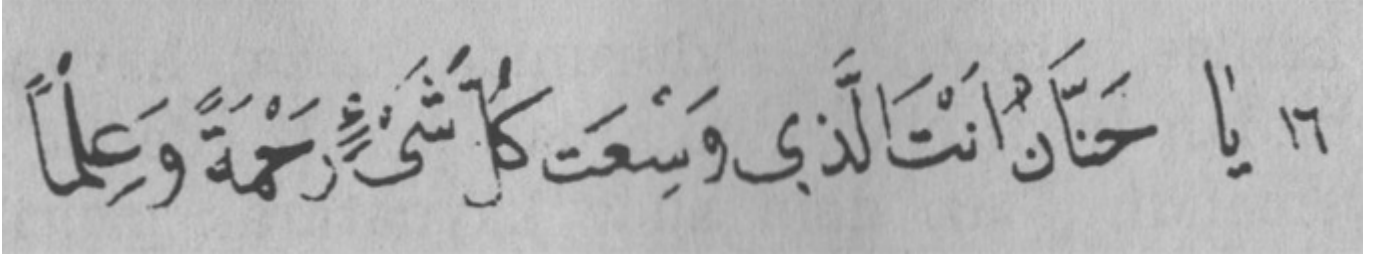 ١٦ يا حَنَّانُ اَنْتَ الَّذِي وَسِعَتَ كُلَّ شَىْءٍ رَحْمَةً وَعِلْماً